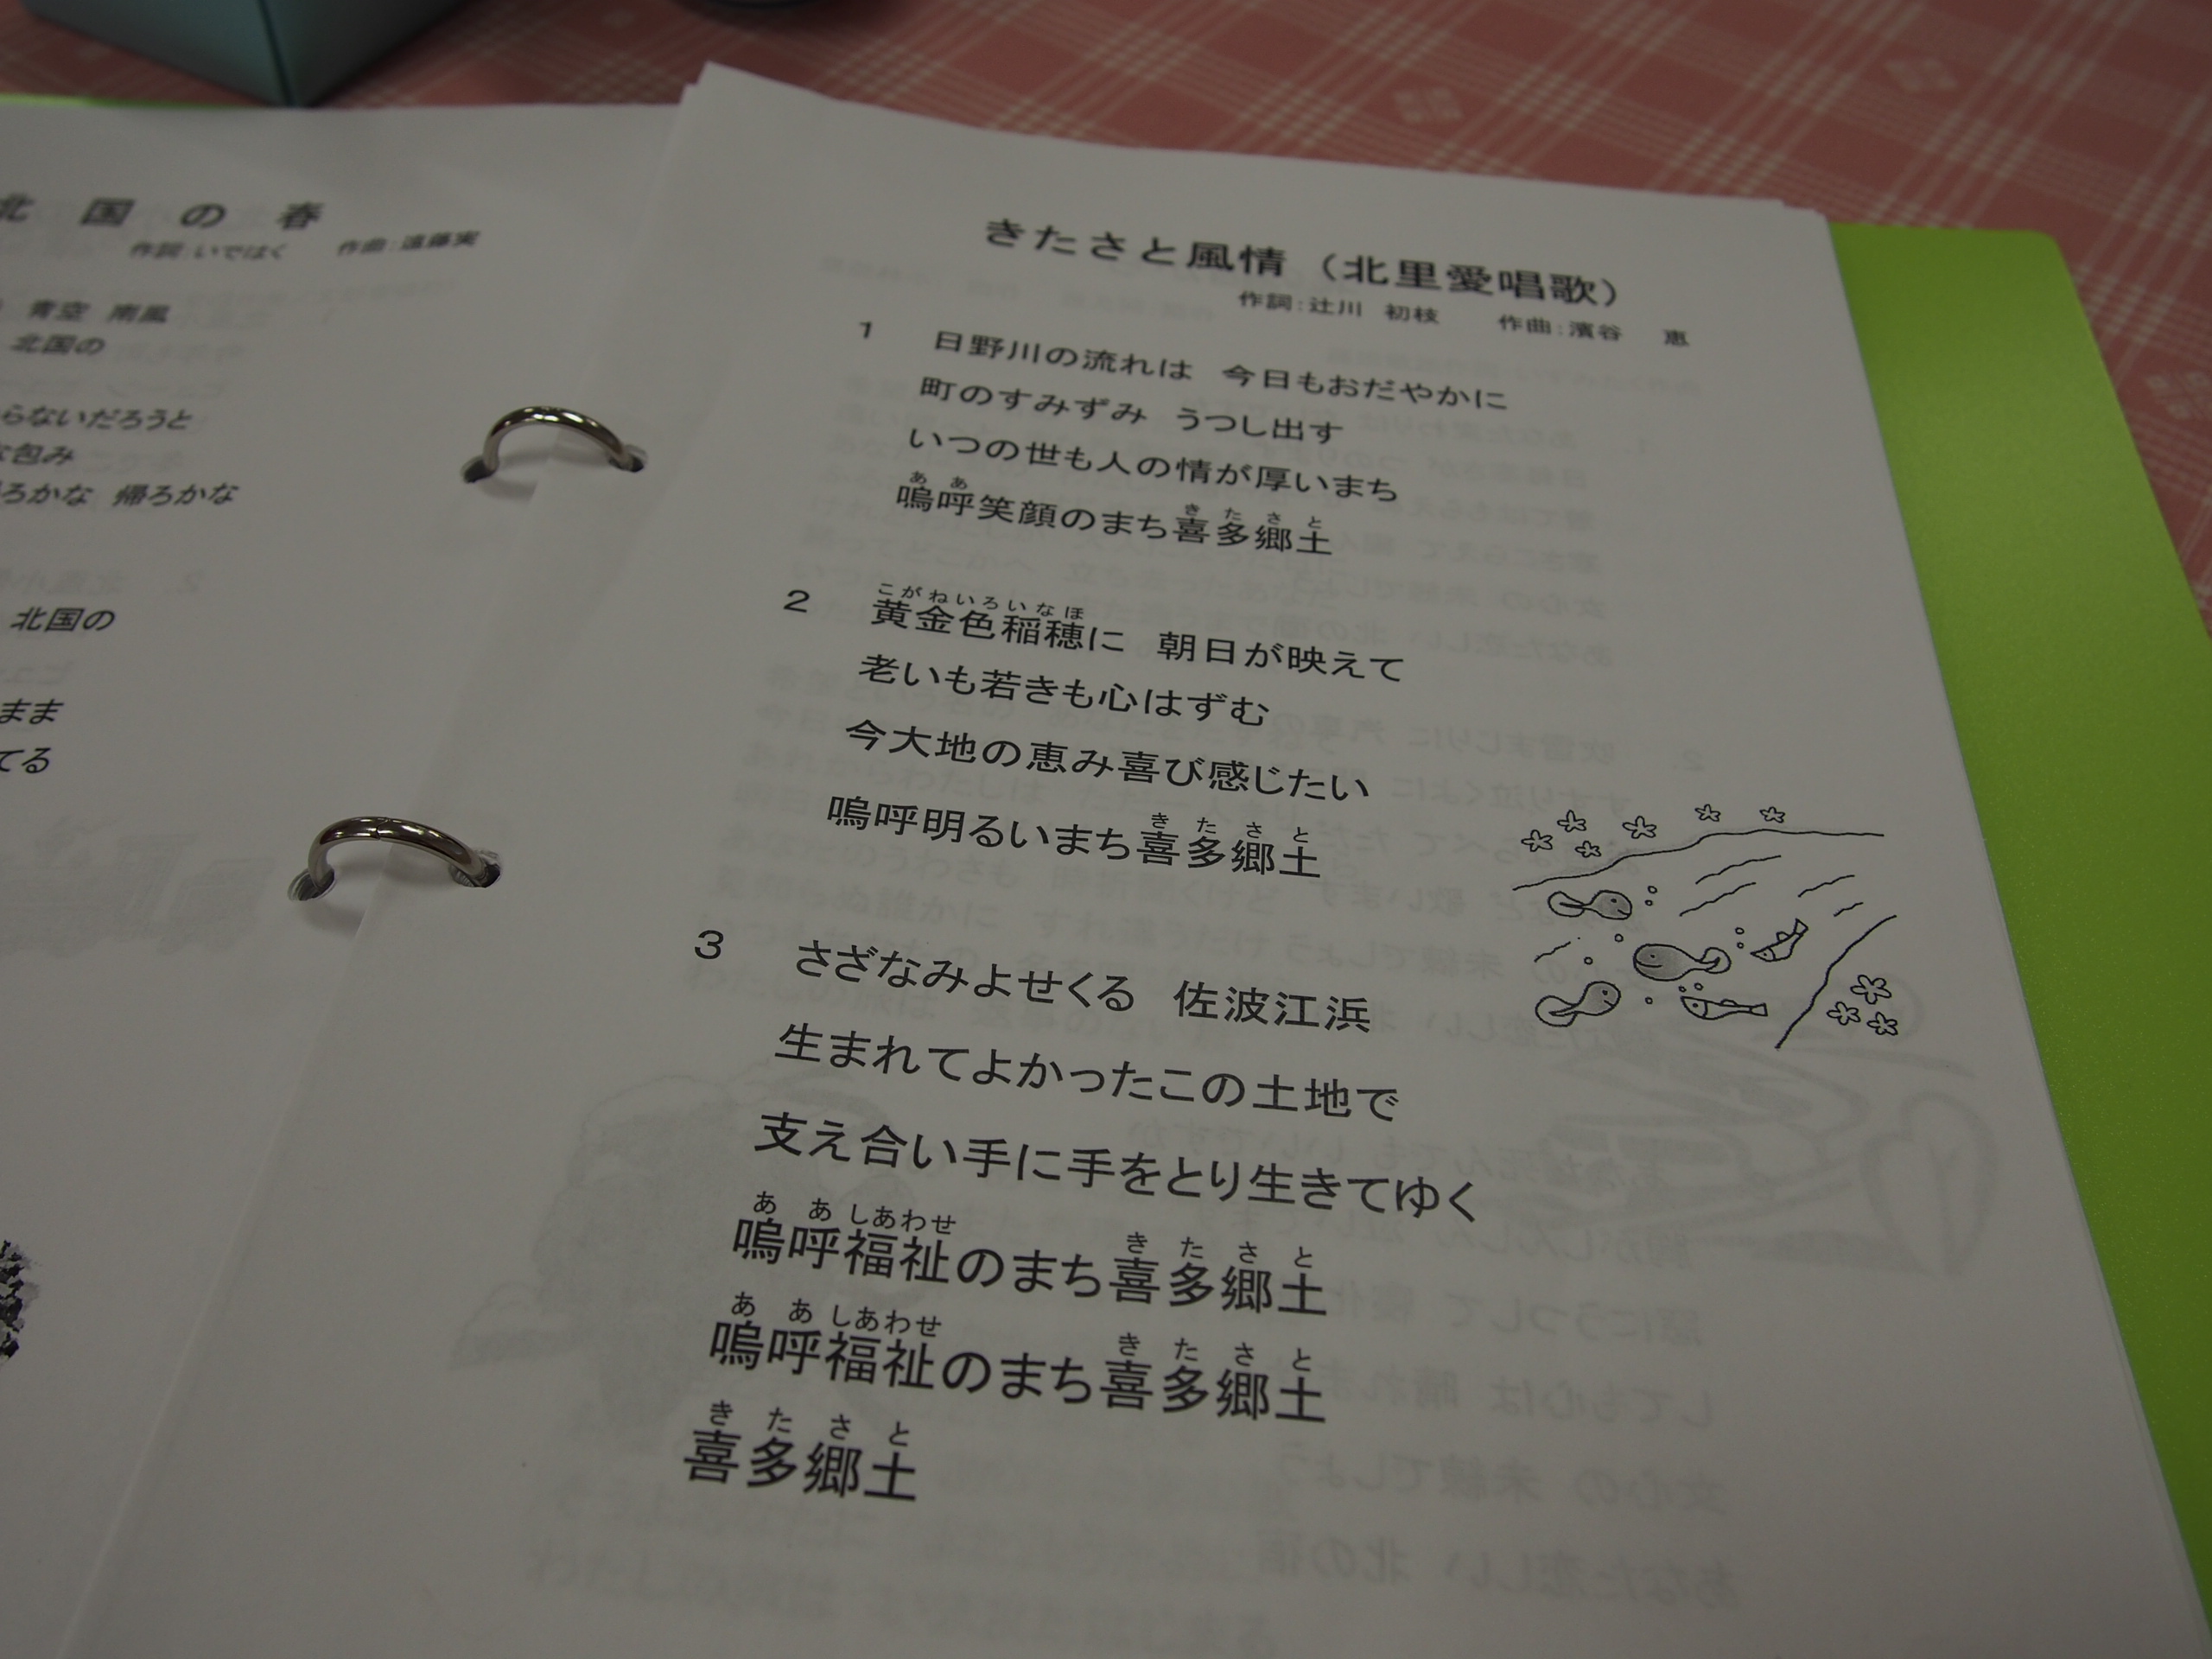 北国の春
作詞:いではく 作曲:遠藤実
青空 南風
北国の
らないだろうと
包み
ろかな 帰ろかな
北国の
まま
てる
きたさと風情（北里愛唱歌）
作詞:辻川 初枝 作曲:濱谷 恵
1 日野川の流れは 今日もおだやかに
町のすみずみ うつし出す
いつの世も人の情が厚いまち
ああ きたさと
嗚呼笑顔のまち喜多郷土
こがねいろいなほ
2 黄金色稲穂に 朝日が映えて
老いも若きも心はずむ
今大地の恵み喜び感じたい
きたさと
嗚呼明るいまち喜多郷土
3 さざなみよせくる 佐波江浜
生まれてよかったこの土地で
支え合い手に手をとり生きてゆく
ああしあわせ きたさと
嗚呼福祉のまち喜多郷土
ああしあわせ きたさと
嗚呼福祉のまち喜多郷土
きたさと
喜多郷土